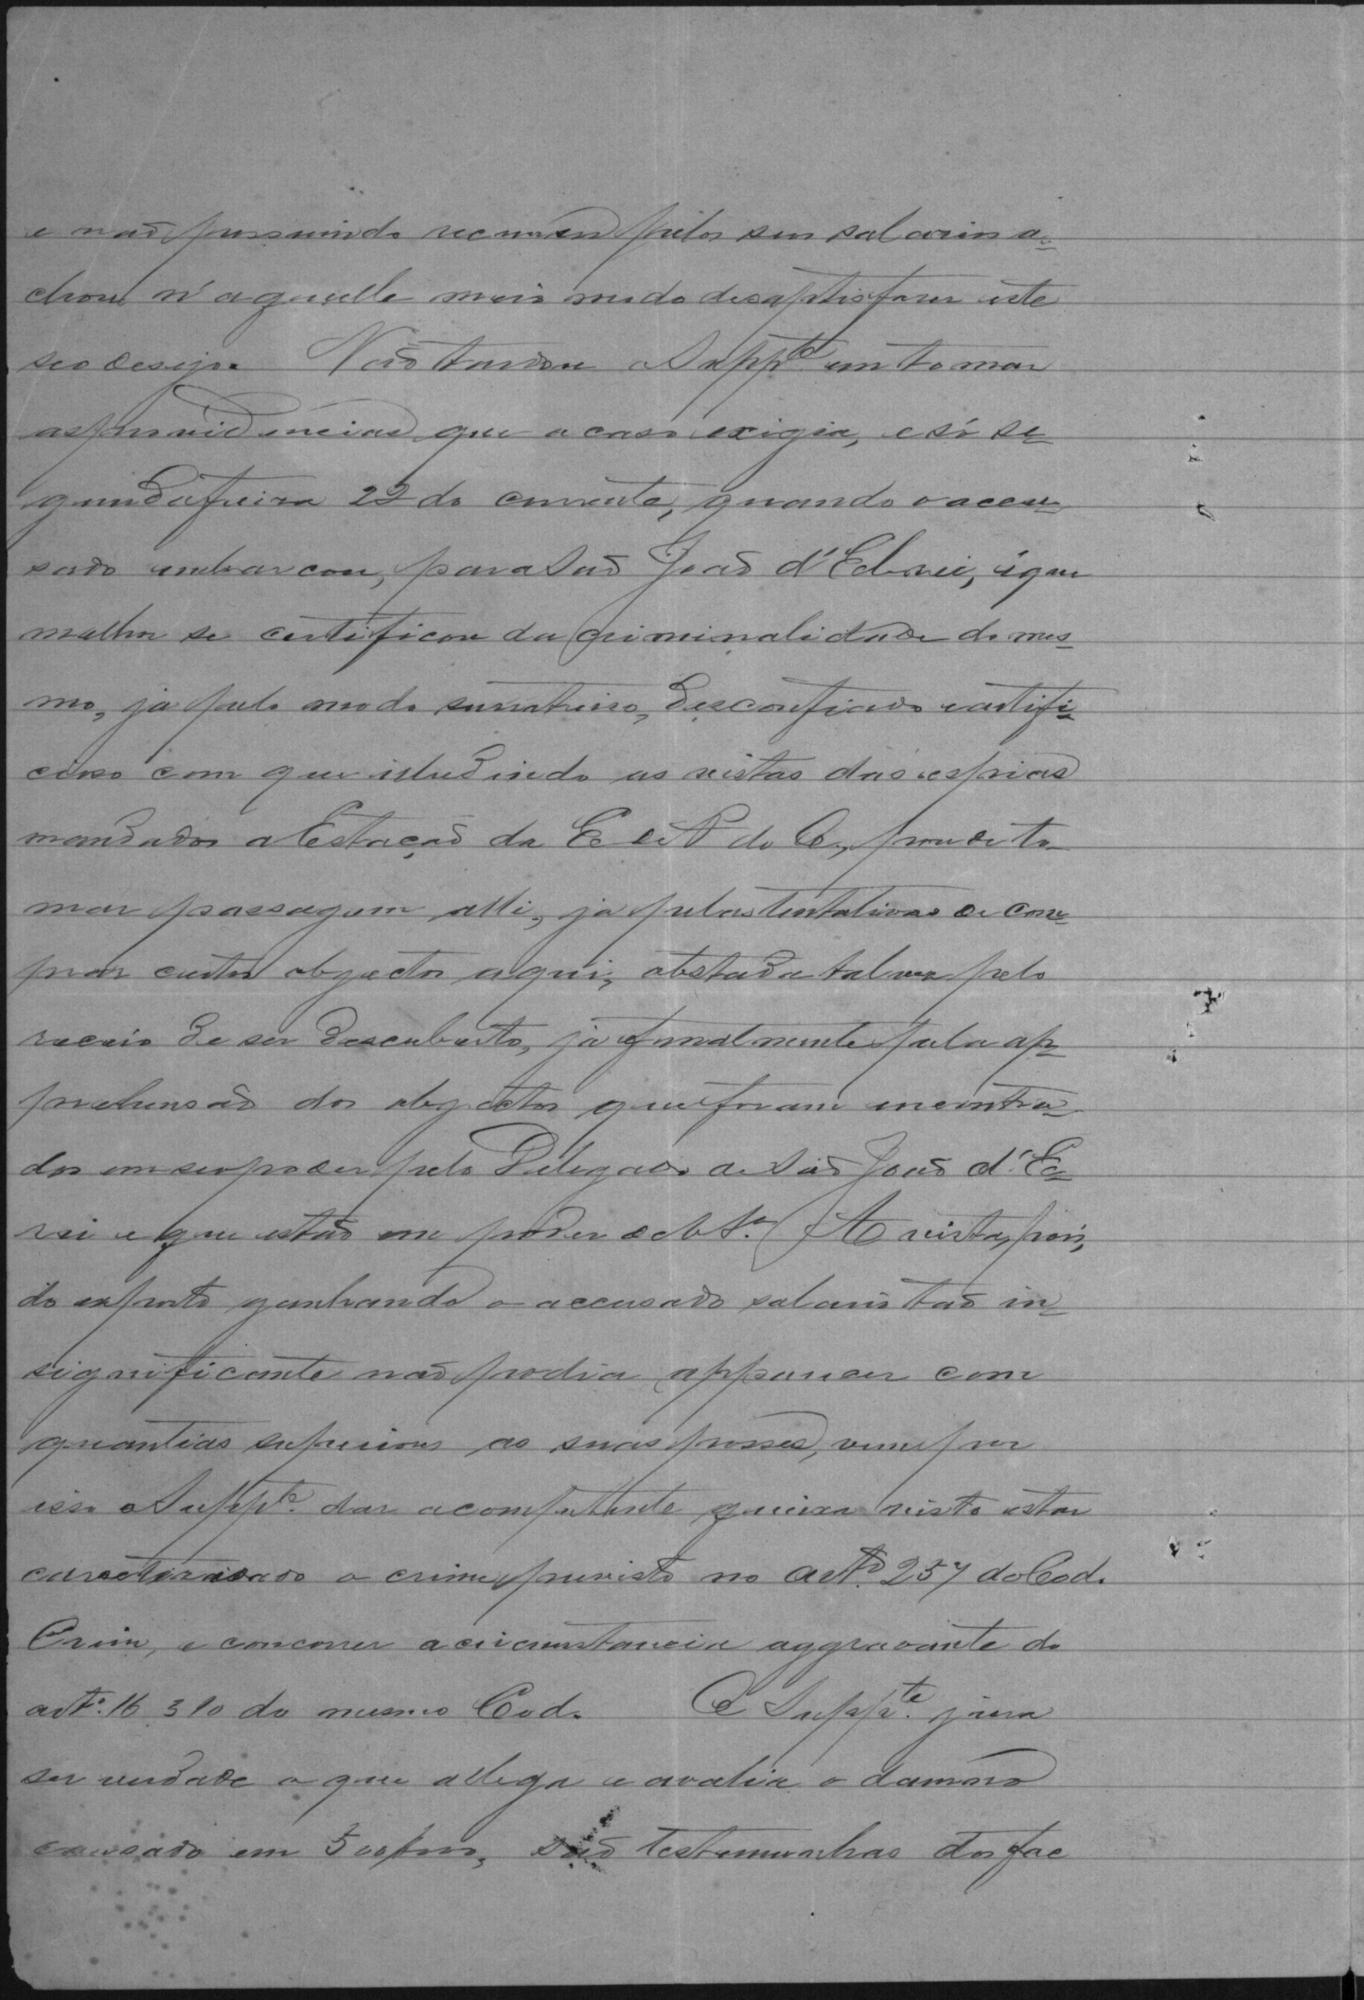 e não possuindo recursos pelos seus salarios a-
chou n'aquelle meio modo de sáptisfazer este
seo desejo. Não tardou o Supp.te em tomar
as providencias que o caso exigia, e só se-
gunda feira 22 do corrente, quando o accu-
sado embarcou, para São João d'El-rei, é que
melhor se certificou da criminalidade do mes-
mo, ja pelo modo surrateiro, desconfiado e artifi-
cioso com que illudindo as vistas das espias
mandados a Estação da E de F do O., poude to-
mar passagem alli, ja pelas tentativas de com-
prar certos objectos aqui, obstada talvez pelo
receio de ser descuberto, já finalmente pela ap-
prehensão dos objectos que foram encontra-
dos em seo poder pelo Delegado de São João d'El-
rei e que estão em poder de V. S.a A vista, pois,
do exposto ganhando o accusado salario tão in-
significante não podia apparecer com
quantias superiores as suas posses, vem por
isso o Supp.te dar a competente queixa visto estar
caracterisado o crime previsto no art.o 257 do Cod.
Crim, e concorrer a circunstancia aggravante do
art.o 16 § 10 do mesmo Cod. O Supp.te jura
ser verdade o que allega e avalia o damno
causado em são testemunhas dos fac